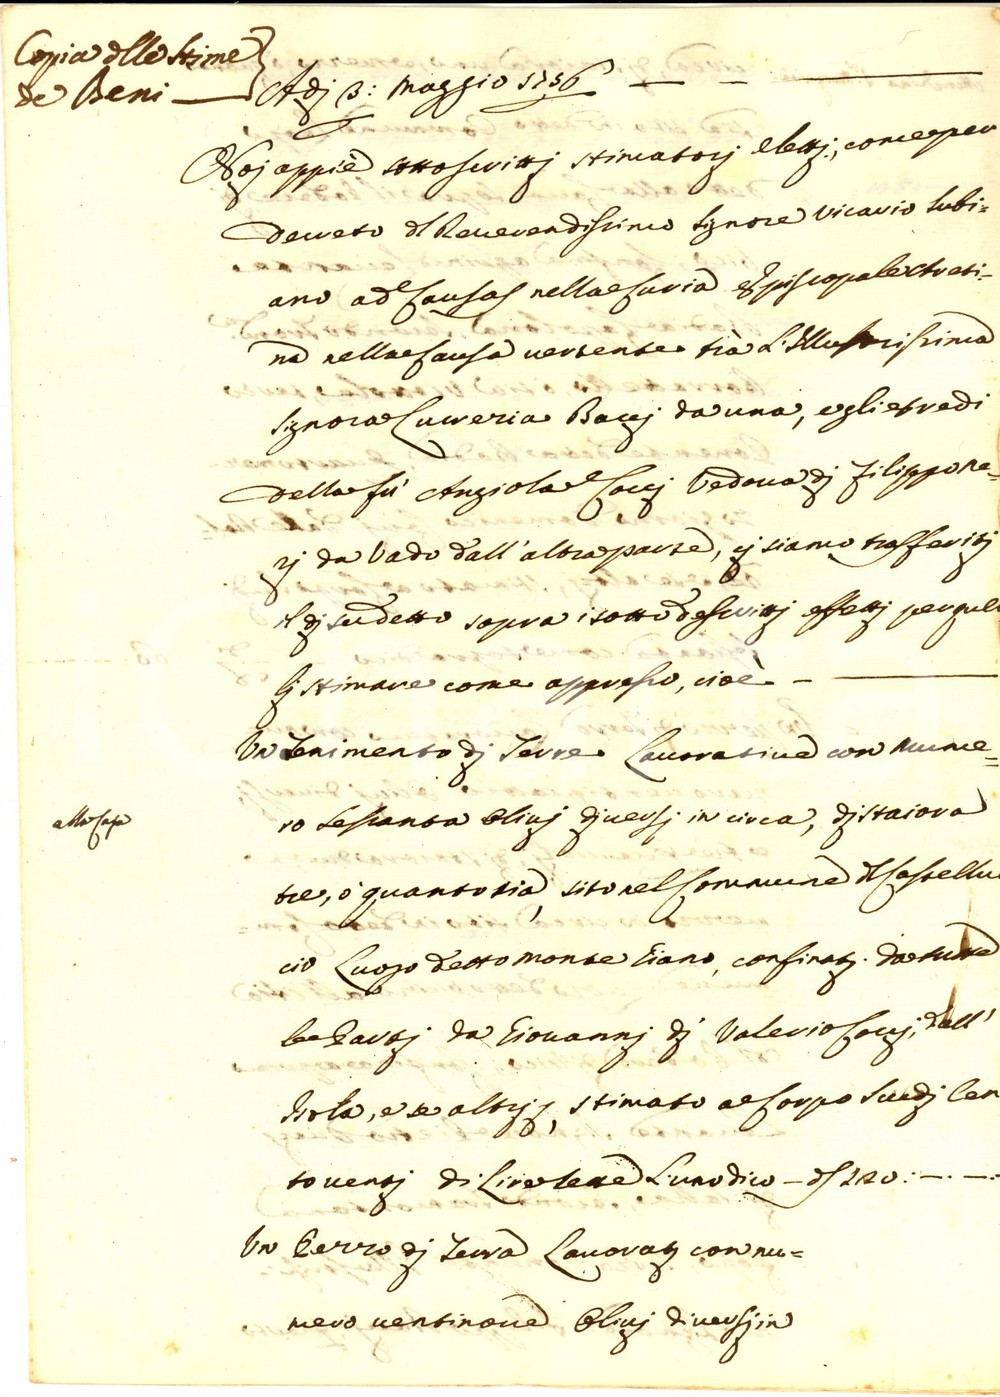 Copia dlle Stime
de Beni
Adj 3: Maggio 1756
Noj appiè sottoscrittj stimatorj elettj, come per
decreto dl Reverendissimo Signore Vicario Subi=
ano ad Causas nella Curia Episcopale Areti=
na nella Causa vertente trà L'Illustrissima
Signora Lucrezia Baccj da una, e gli Eredi
della fu' Angiola Coccj Vedova dj Filippo ne=
rj da Vado dall'altra parte, cj siamo trasferitj
il dj sudetto sopra i sotto descrittj effettj per quel
lj stimare come appresso, cioè
Un Tenimento dj Terre Lavorative con Nume=
ro sessanta Olivj diversj in circa, dj staiora
alla Casa
tre, ò quanto sia, sito nel Commune dl Castellu
cio Luogo detto Monte Giano, confinatj da tutte
le Partj da Giovannj dj Valerio Coccj, dall'
Isola, e se altrj, stimato a Corpo Scudj Cen
to ventj di Lire sette L'uno dico - ds 120:
Un Pezzo dj Terra Lavoratj con nu=
mero ventinove Olivj diversj in